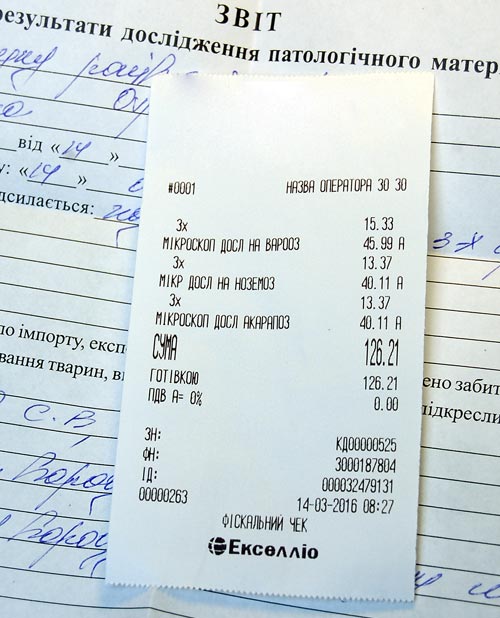 ЗВІТ
результати дослідження патологічного матер
від «14»
у: «14»
дсилається:
#0001 НАЗВА ОПЕРАТОРА 30 30
3x 15.33
МІКРОСКОП ДОСЛ НА ВАРООЗ 45.99 А
3x 13.37
МІКР ДОСЛ НА НОЗЕМОЗ 40.11 А
3x 13.37
МІКРОСКОП ДОСЛ АКАРАПОЗ 40.11 А
СУМА 126.21
ГОТІВКОЮ 126.21
ПДВ А= 0% 0.00
ЗН: КД00000525
ФН: 3000187804
ІД: 000032479131
00000263 14-03-2016 08:27
ФІСКАЛЬНИЙ ЧЕК
Екселліо
3-х
по імпорту, експ
ено забит
вання тварин, в
підкресли
С.В,